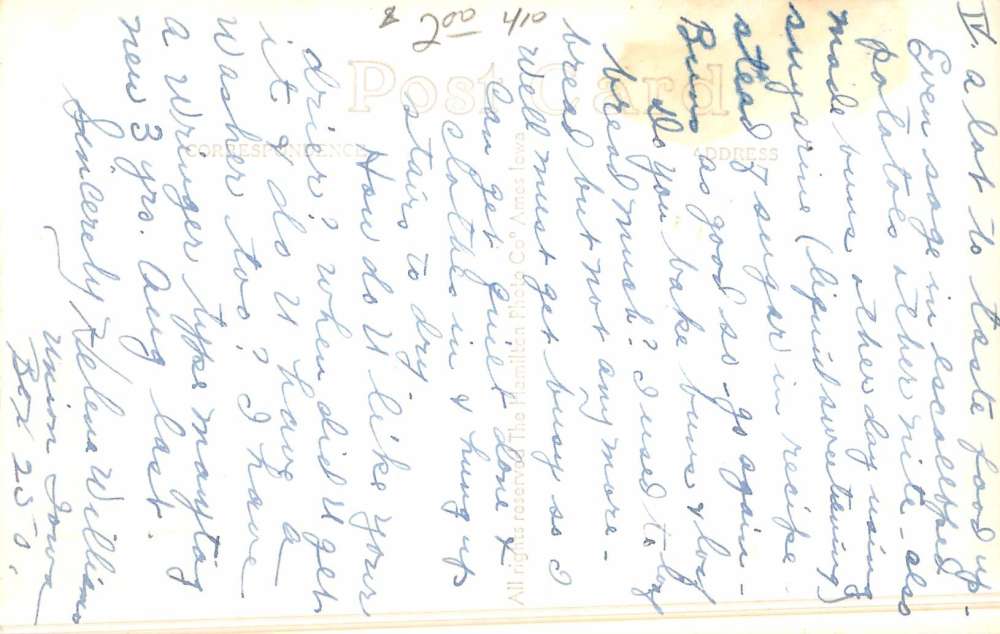 IV. a lot to taste food up-
Even sage in escalloped
potatoes other nite - also
made buns other day using
sugarine (liquid sweetening)
stead of sugar in recipe
Buns as good so go again -
Do you bake buns &
bread much? I used to
bread but not any more -
Well must get busy so I
can get quilt done &
clothes in & hung up
stairs to dry.
How do U like your
drier? When did U get
it & do U have a
Washer too? I have
a Wringer type maytag
new 3 yrs. Aug last.
Sincerely Helena Williams
Union Iowa
Box 25
Post Card
CORRESPONDENCE
ADDRESS
All rights reserved The Hamilton Photo Co Ames Iowa
8 200 410